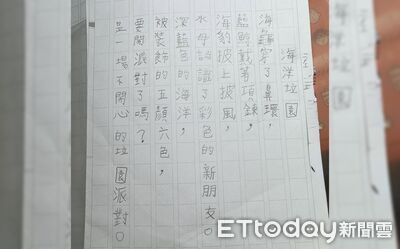 海洋垃園
海洋垃園
海龜穿了鼻環，
藍鯨戴著項鍊，
海豹披上披風，
水母認識了彩色的新朋友。
深藍色的海洋，
被裝飾的五顏六色，
要開派對了嗎？
是一場不開心的垃園派對。
ETtoday新聞雲